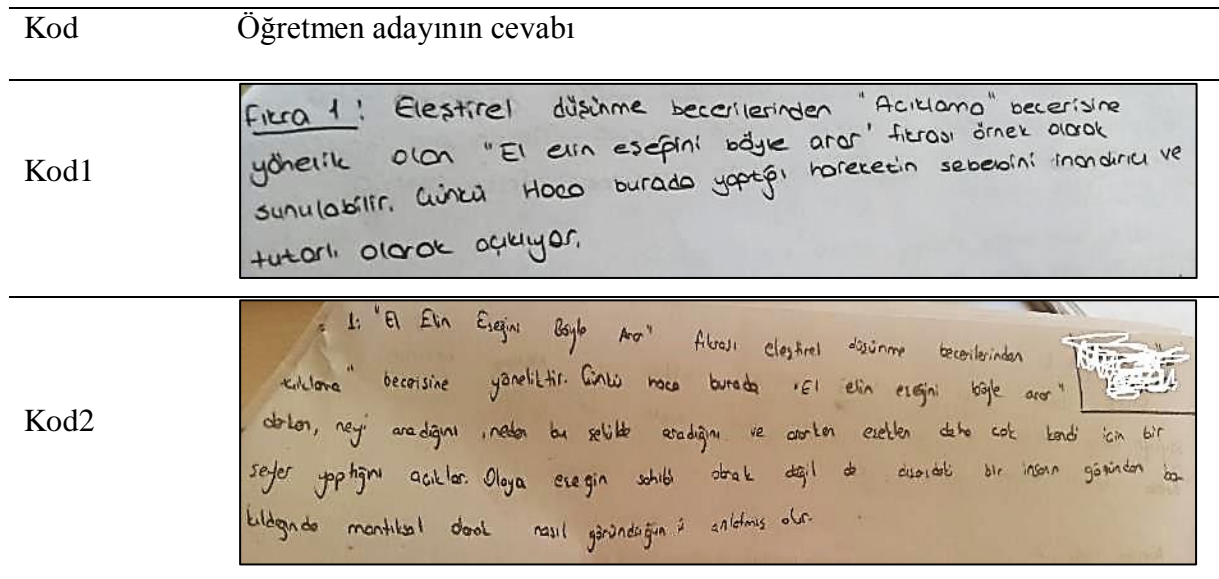 Kod Öğretmen adayının cevabı
Kod1
Fıkra 1: Eleştirel düşünme becerilerinden "Açıklama" becerisine
yönelik olan "El elin eşeğini böyle arar' fıkrası örnek olarak
sunulabilir. Çünkü Hoca burada yaptığı hareketin sebebini inandırıcı ve
tutarlı olarak açıklıyor.
Kod2
1: "El Elin Eşeğini Böyle Arar" fıkrası eleştirel düşünme becerilerinden
becerisine yöneliktir. Çünkü hoca burada "El elin eşeğini böyle arar"
derken, neyi aradığını, neden bu şekilde aradığını ve ararken eşekten daha çok kendi için bir
şeyler yaptığını açıklar. Olaya eşeğin sahibi olarak değil de dışardaki bir insanın gözünden ba-
kıldığında mantıksal olarak nasıl göründüğünü anlatmış olur.